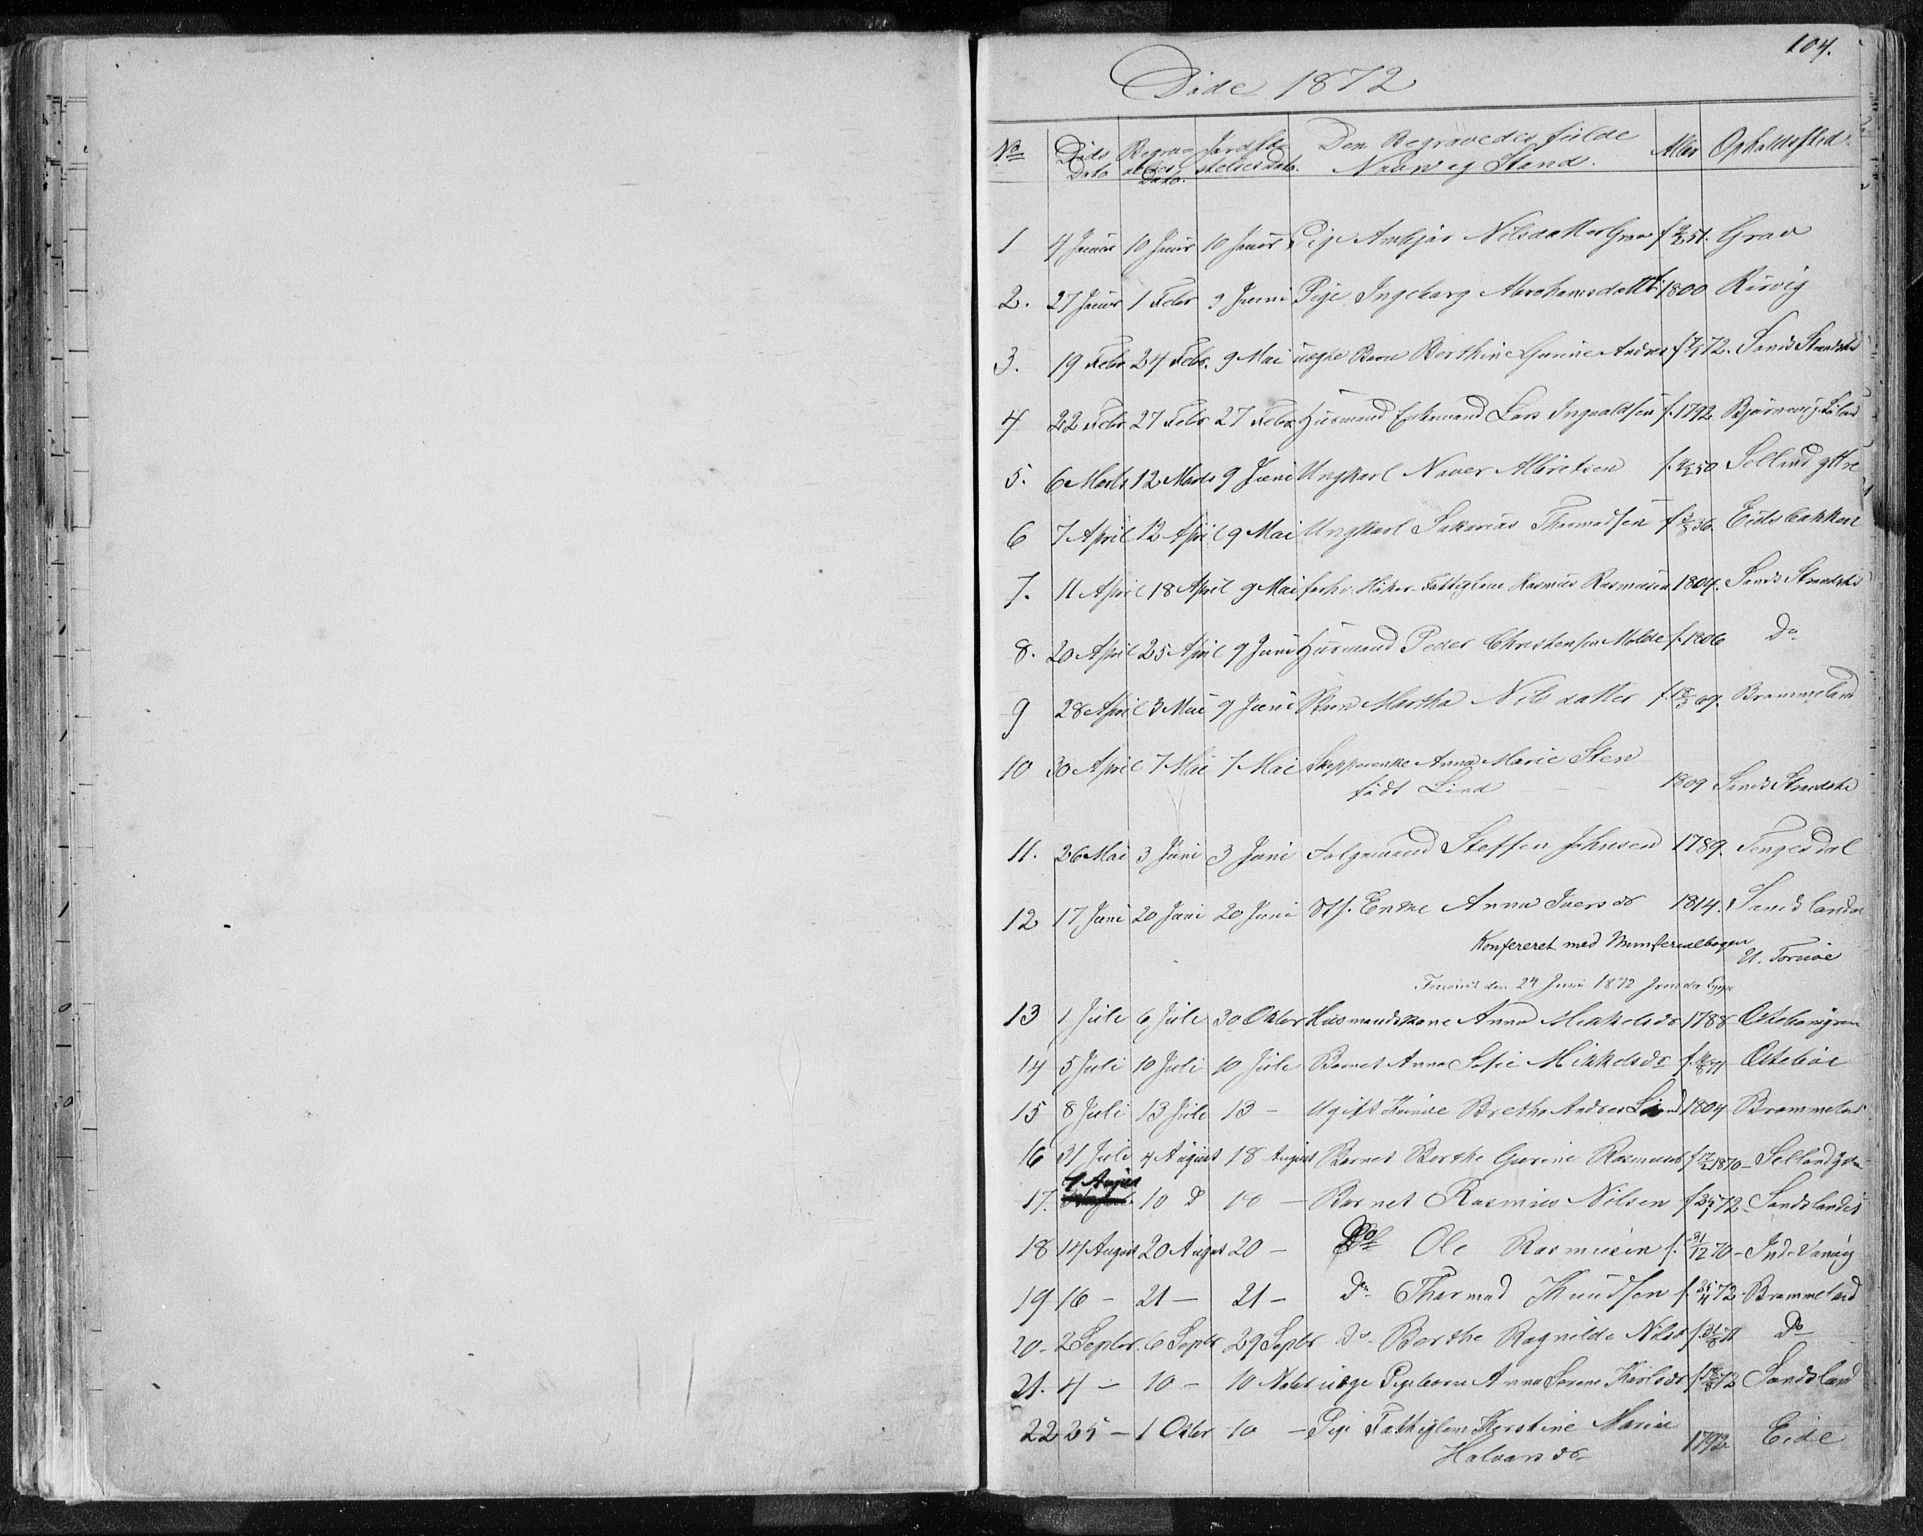 104.
Døde 1872
No Døds Dato Begravelses Dato. Jordfæstelses Dato. Den Begravedes fulde Navn og Stand. Alder Opholdssted.
1 4 Januar 10 Januar 10 Januar Pige Nilsdatter Grav f 51. Grav
2. 27 Januar 1 Febr 9 Juni Pige Ingeborg Abrahamsdatter 1800 Rørvig
3. 19 Febr 24 Febr. 9 Mai uægte Barn Berthine Gurine Andrea f 72. Sands Strandsted
4 22 Febr 27 Febr 27 Febr Husmand Enkemand Lars Ingvaldsen f. 1792
5. 6 Marts 12 Marts 9 Juni Ungkarl f. 50 Selland yttre
6 7 April 12 April 9 Mai Ungkarl Sakarias Thormodsen f 36. Eidsbakken
7. 11 April 18 April 9 Mai Fattiglem Rasmus Rasmussen 1804. Sands Strandsted
8. 20 April 25 April 9 Juni Husmand Peder Christensen Molde f. 1806 Do
9 28 April 3 Mai 9 Juni Barn Martha Nilsdatter f. 69. Brommeland
10 30 April 7 Mai 7 Mai Skipperenke Anna Marie Sten
født Lind 1809 Sands Strandsted
11. 26 Mai 3 Juni 3 Juni Folgemand Steffen Johnsen 1789. Tengesdal
12 17 Juni 20 Juni 20 Juni Enke Anna Iversdr 1814. Sandsland
Konfereret med Ministerialbogen
U. Tornøe
den 24 Juni 1872
13 1 Juli 6 Juli 30 Oktbr Husmandskone Anna Mikkelsdr 1788
14 5 Juli 10 Juli 10 Juli Barnet Anna Sofie Mikkelsdr f. 71 Østebøe
15 8 Juli 13 Juli 13 - Ugift Kvinde Bretha 1804 Brommeland
16 31 Juli 4 August 18 August Barnet Berthe Gurine Rasmusd f 1870 - Selland
17. 4 August 10 d 10 - Barnet Rasmus Nilsen f 72 - Sandsland
18 14 August 20 August 20 - Do Ole Rasmusen f. 31/12 70 - Indr Vanvig
19 16 - 21 - 21 - Do Thormod Knudsen f. 25/4 72 - Brommeland
20. 2 Septbr. 6 Septbr 29 Septbr Do Berthe Ragnilde Nilsd f. 71 Do
21. 4 - 10 - 10 Novbr uægte Pigebarn Anna Serene Karlsdr f. 72 Sandsland
22 25 - 1 Oktbr 10 - Pige Fattiglem Kirstine Marie
Halvorsdr 1792 Eide